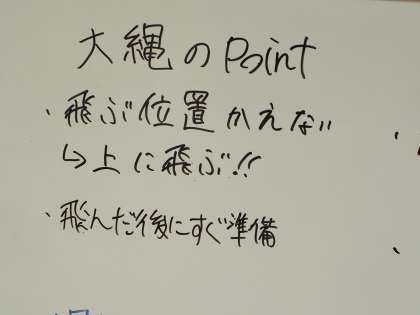 大縄のPoint
・飛ぶ位置かえない
↳上に飛ぶ!!
・飛んだ後にすぐ準備